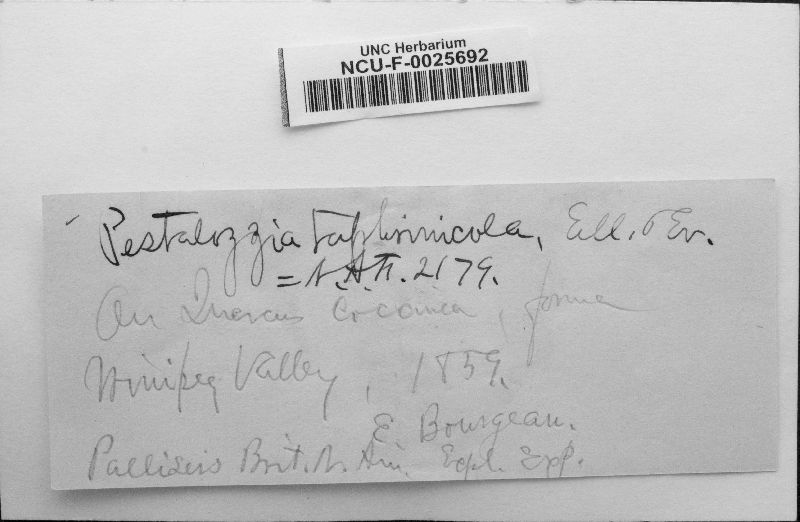 UNC Herbarium
NCU-F-0025692
Pestalozzia taphrinicola, Ell. & Ev.
= N.A.F. 2179.
On Quercus Coccinea, forma
Winipeg Valley, 1859.
E. Bourgeau.
Pallisers Brit. N. Am. Expl. Exp.